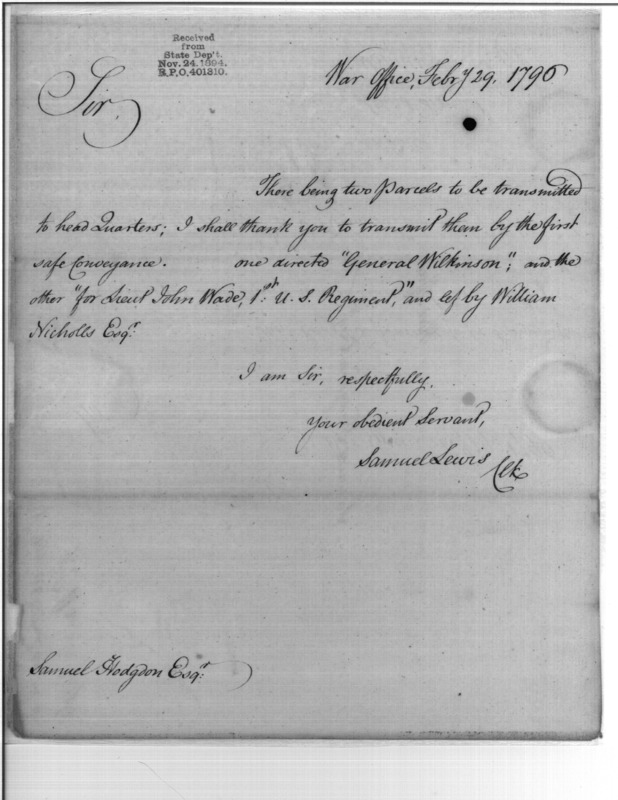 Received
from
State Dep't.
Nov. 24. 1894.
R.P.O, 401810.
War Office, Febry 29. 1796
Sir,
There being two Parcels to be transmitted
to head Quarters; I shall thank you to transmit them by the first
safe Conveyance. one directed "General Wilkinson"; and the
other "for Lieut John Wade, 1st U. S. Regiment," and lef by William
Nicholls Esqr
I am Sir, respectfully.
your obedient Servant,
Samuel Lewis Clk
Samuel Hodgdon Esqr